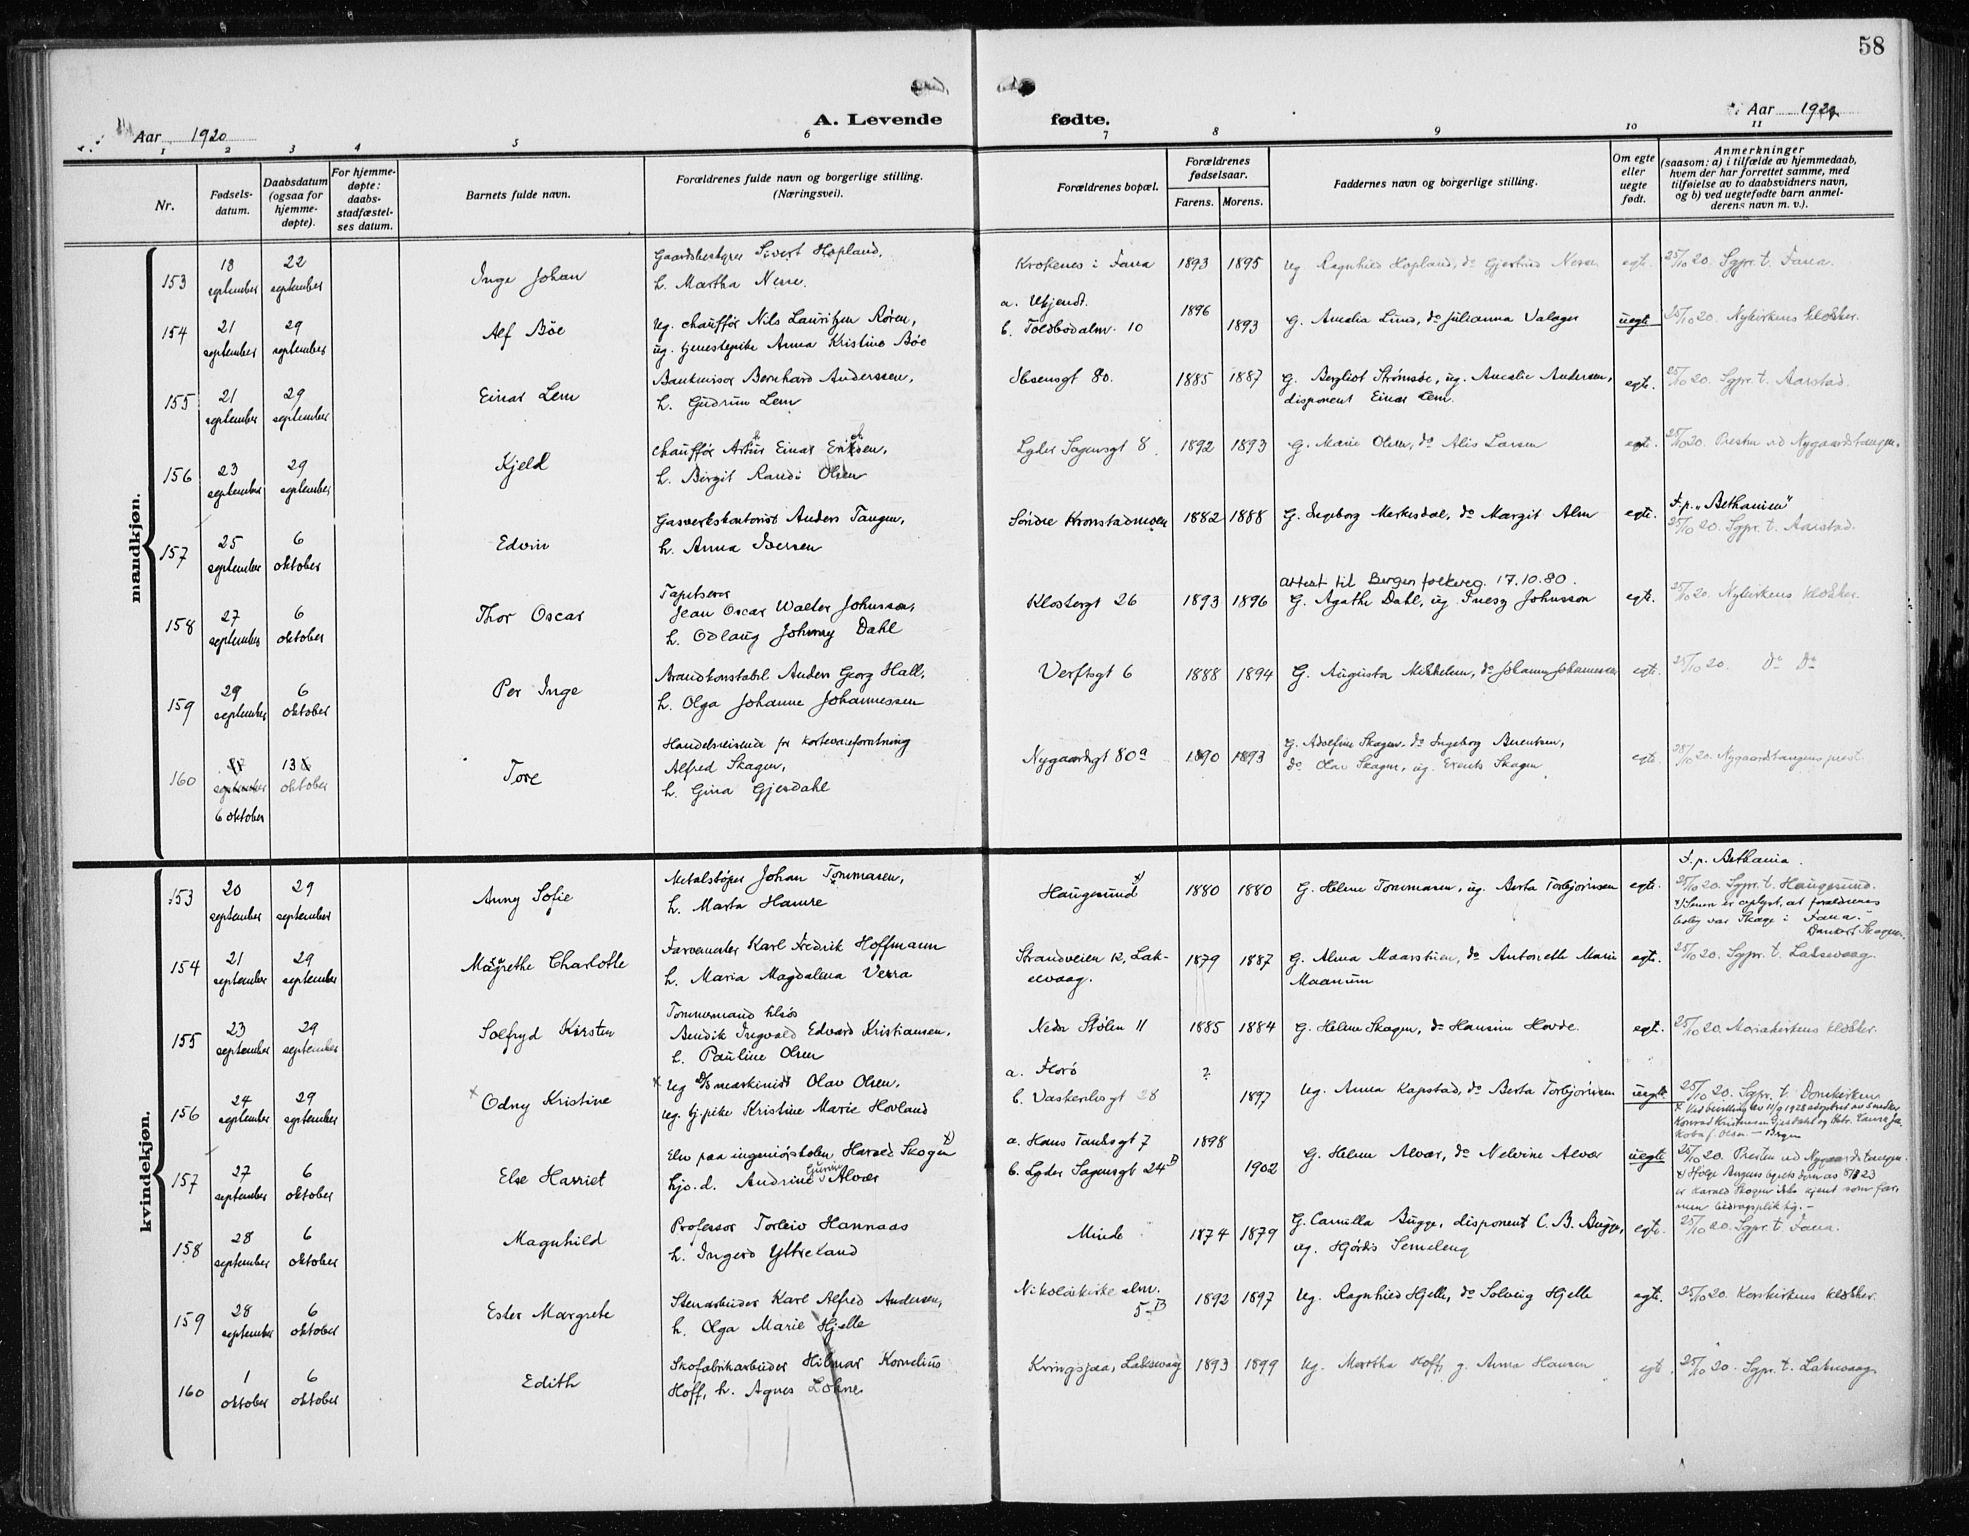 58
Aar 1920
A. Levende
fødte.
Aar 192
1 2 3 4 5 6 7 8 9 10 11
Nr.
Fødsels-
datum.
Daabsdatum
(ogsaa for
hjemme-
døpte).
For hjemme-
døpte:
daabs-
stadfæstel-
ses datum.
Barnets fulde navn.
Forældrenes fulde navn og borgerlige stilling.
(Næringsvei).
Forældrenes bopæl.
Forældrenes
fødselsaar.
Farens. Morens.
Faddernes navn og borgerlige stilling.
Om egte
eller
uegte
født.
Anmerkninger
(saasom: a) i tilfælde av hjemmedaab,
hvem der har forrettet samme, med
tilføielse av to daabsvidners navn,
og b) ved uegtefødte barn anmel-
derens navn m. v.).
mandkjøn.
153 18 september 22 september Inge Johan
Gaardsbestyrer Sivert Hopland,
h. Martha Nesse.
Krokenes i Fana 1893 1895 ug. Ragnhild Hopland, do Gjertrud egte. 25/10 20. Sgpr. t. Fana.
154 21 september 29 september Alf Bøe
ug. chauffør Nils Lauritzen Røren,
ug. tjenestepike Anna Kristine Bøe
a. Ukjendt.
b. Toldbodalm. 10
1896 1893 G. Amalia Lund, do Julianna uegte 25/10 20. Nykirkens klokker.
155 21 september 29 september Einar Lem
Bankrevisor Bernhard Anderssen,
h. Gudrun Lem
Ibsensgt 80. 1885 1887 G. Bergliot Strømsøe, ug. Amalie Andersen,
disponent Einar Lem.
egte. 25/10 20. Sgpr. t. Aarstad.
156 23 september 29 september Kjeld
chauffør Artur Einar
h. Birgit Randi Olsen
Lyder Sagensgt 8 1892 1893 G. Marie Olsen, do Alis Larsen egte. 25/10 20. Presten ved Nygaardstangen.
157 25 september 6 oktober Edvin
Gasverkskontorist Anders Tangen,
h. Anna Iversen
Søndre Kronstadmoen 1882 1888 G. Ingeborg Merkesdal, do Margit Alm egte. F.p. "Bethanien"
25/10 20. Sgpr. t. Aarstad.
158 27 september 6 oktober Thor Oscar
Tapetserer
Jean Oscar Walter Johnsson,
h. Odlaug Johnny Dahl
Klostergt 26 1893 1896
attest til Bergen folkereg. 17.10.80.
G. Agathe Dahl, ug. Johnsson egte. 25/10 20. Nykirkens klokker.
159 29 september 6 oktober Per Inge
Brandkonstabel Anders Georg Hall,
h. Olga Johanne Johannessen
Verftsgt 6 1888 1894 G. Augusta Mikkelsen, do Johanne Johannessen egte. 25/10 20. do do
160 september 6 oktober 13 oktober Tore
Handelsreisende for kortevareforretning
Alfred Skagen,
h. Gina Gjesdahl
Nygaardsgt 80a 1890 1893 G. Adolfine Skagen, do Ingeborg Berentsen,
do Olav Skagen, ug. Skagen
egte. 25/10 20. Nygaardstangens prest.
kvindekjøn.
153 20 september 29 september Anny Sofie
Metalstøper Johan Tommasen,
h. Marta Hamre
Haugesund x) 1880 1880 G. Helene Tommasen, ug. Berta Torbjørnsen egte.
F.p. Bethania.
25/10 20. Sgpr. t. Haugesund.
x) Senere er oplyst, at forældrenes
bolig var Skage i Fana.
Dankert Skagen.
154 21 september 29 september Margrethe Charlotte
Farvemester Karl Fredrik Hoffmann
h. Maria Magdalena Verra
Strandveien 12, Lak-
sevaag.
1879 1887 G. Alma Maarstuen, do Antonette Marie
Maanum
egte. 25/10 20. Sgpr. t. Laksevaag.
155 23 september 29 september Solfryd Kirsten
Tømmermand
Bendik Ingvald Edvard Kristiansen,
h. Pauline Olsen
Nedre Stølen 11 1885 1884 G. Helene Skagen, do Hansine Hovde. egte. 25/10 20. Mariakirkens klokker.
156 24 september 29 september x Odny Kristine
x Ug D/S maskinist Olav Olsen,
ug. tj.pike Kristine Marie Hovland
a. Florø
b. Vaskerelvsgt 28
? 1897 Ug. Anna Kapstad, do Berta Torbjørnsen uegte 25/10 20. Sgpr. t. Domkirken
x Ved bevilling av 11/9 1928 adoptert av smedm.
Konrad Kristensen Gjesdahl og hstr. Laura Ja-
koba f. Olsen — Bergen
157 27 september 6 oktober Else Harriet
Elev paa ingeniørskolen, Harald Skogen x)
hjv. d. Andrine Gurine Alvær
a. Hans Tanksgt 7
b. Lyder Sagensgt 24B
1898 1902 G. Helene Alvær, do Nelvine Alvær uegte 25/10 20. Presten ved Nygaardstangen.
x) Ifølge Bergens byrets dom av 8/3 23
er Harald Skogen ikke kjent som far,
men bidragspliktig. -
158 28 september 6 oktober Magnhild
Professor Torleiv Hannaas
h. Ingerd Ytreland
Minde 1874 1879 G. Camilla Bugge, disponent C. B. Bugge,
ug. Hjørdis Semeleng
egte. 25/10 20. Sgpr. t. Fana.
159 28 september 6 oktober Ester Margrete
Stenarbeider Karl Alfred Andersen,
h. Olga Marie Hjelle
Nikolaikirke alm.
5B
1892 1897 Ug. Ragnhild Hjelle, do Solveig Hjelle egte. 25/10 20. Korskirkens klokker.
160 1 oktober 6 oktober Edith
Skofabrikarbeider Hilmar Kornelius
Hoff, h. Agnes Lohne
Kringsjaa, Laksevaag 1893 1899 Ug. Martha Hoff, g. Anna Hansen egte. 25/10 20. Sgpr. t. Laksevaag.